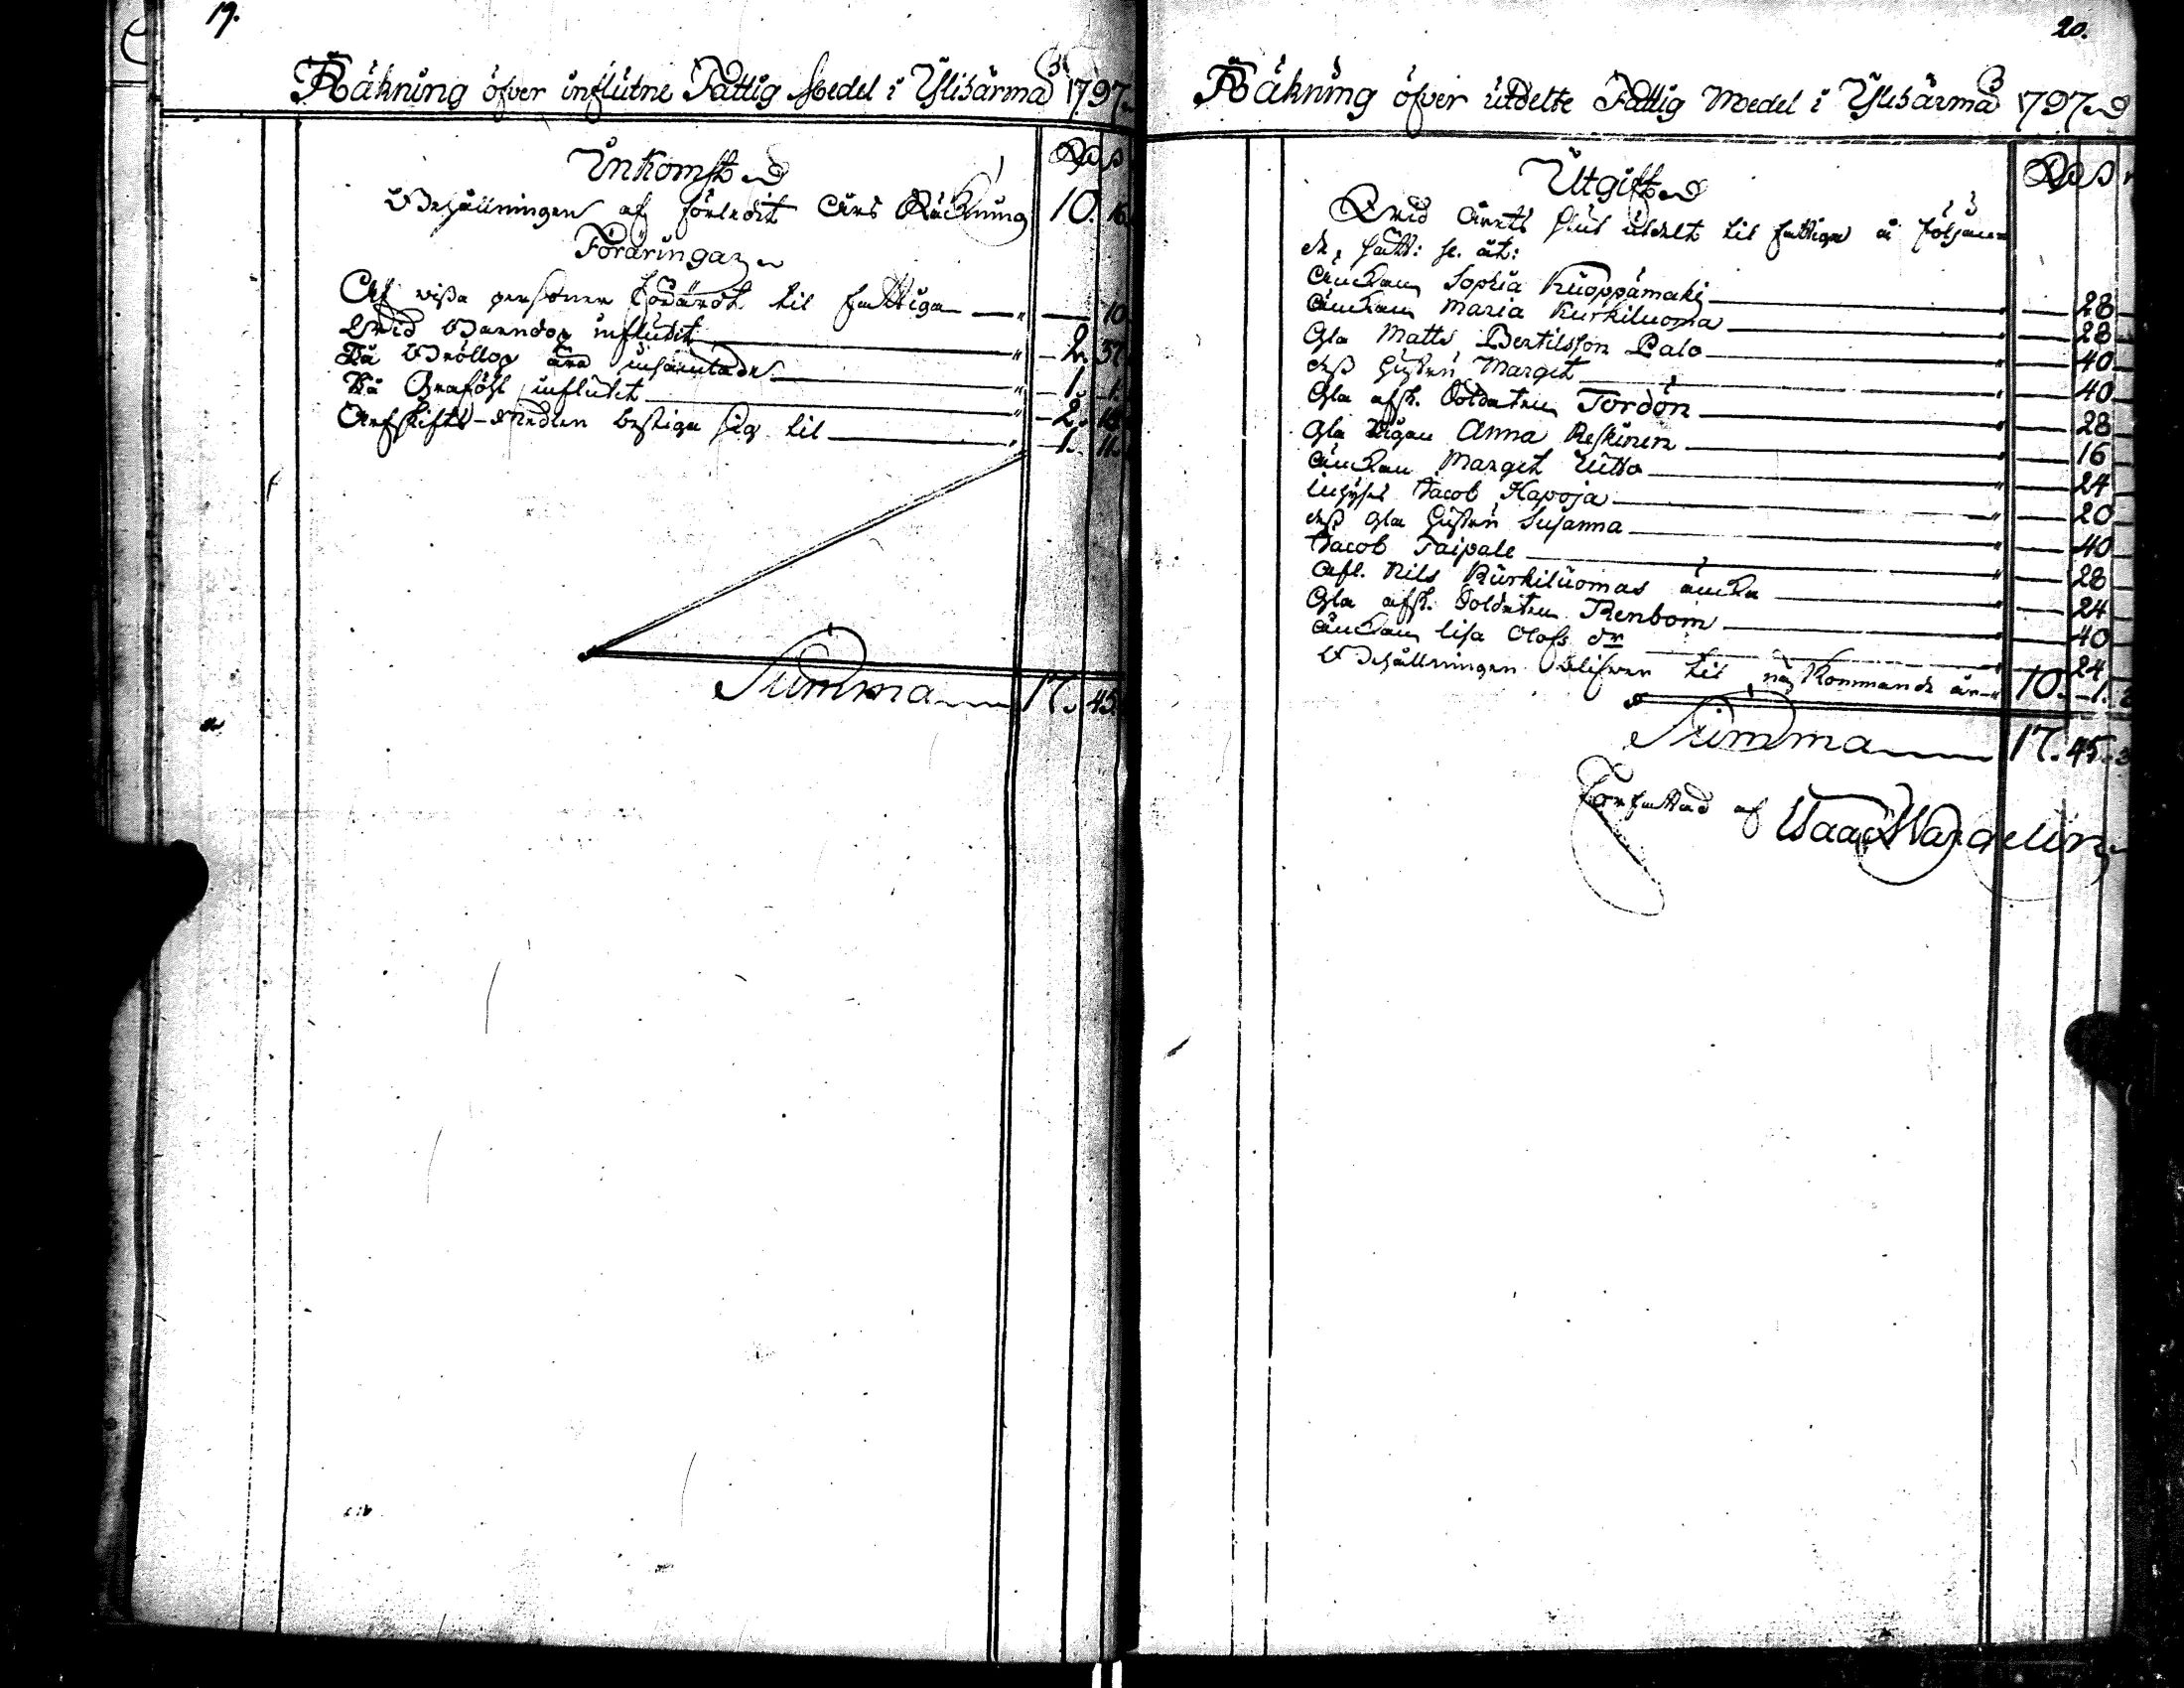 19.
Räkning öfver influtne Fattig Medel i Ylihärmä 1797
Rd ß
Inkomst
Behållningen af förledit Års Räkning 10. 16.
Föräringar
Af vissa personer förärdt til fattiga 10.
Wid Barndop influtit 2. 37.
På Bröllop äro insamlade 1. 1.
På Graföhl influtit 2. 18.
Arfskifts-Medlen bestiga sig til 1. 11.
Summa 17. 45.
20.
Räkning öfver utdelte Fattig Medel i Ylihärmä 1797
Rd ß r
Utgift
Wid Årets slut utdelt til fattiga å följan-
de sätt: se. åt:
Änckan Sophia Kuoppamäki 28
Änckan Maria Kurkiluoma 28
Gla Matts Bertilsson Palo 40
dess Hustru Margeta 40
Gla afsk. Soldaten Tordön 28
Gla Pigan Anna Keskinen 16
Änckan Marget Uitto 24
Inhyses Jacob Hapoja 20
dess Gla Hustru Susanna 40
Jacob Taipale 28
Afl. Nils Kurkiluomas äncka 24
Gla afsk. Soldaten Renbom 40
Änckan Lisa Olofs dr 24
Behållningen blifver til näst Kommande år 10. 1. 2
Summa 17. 45. 2
Författad af Isaac Wargelin